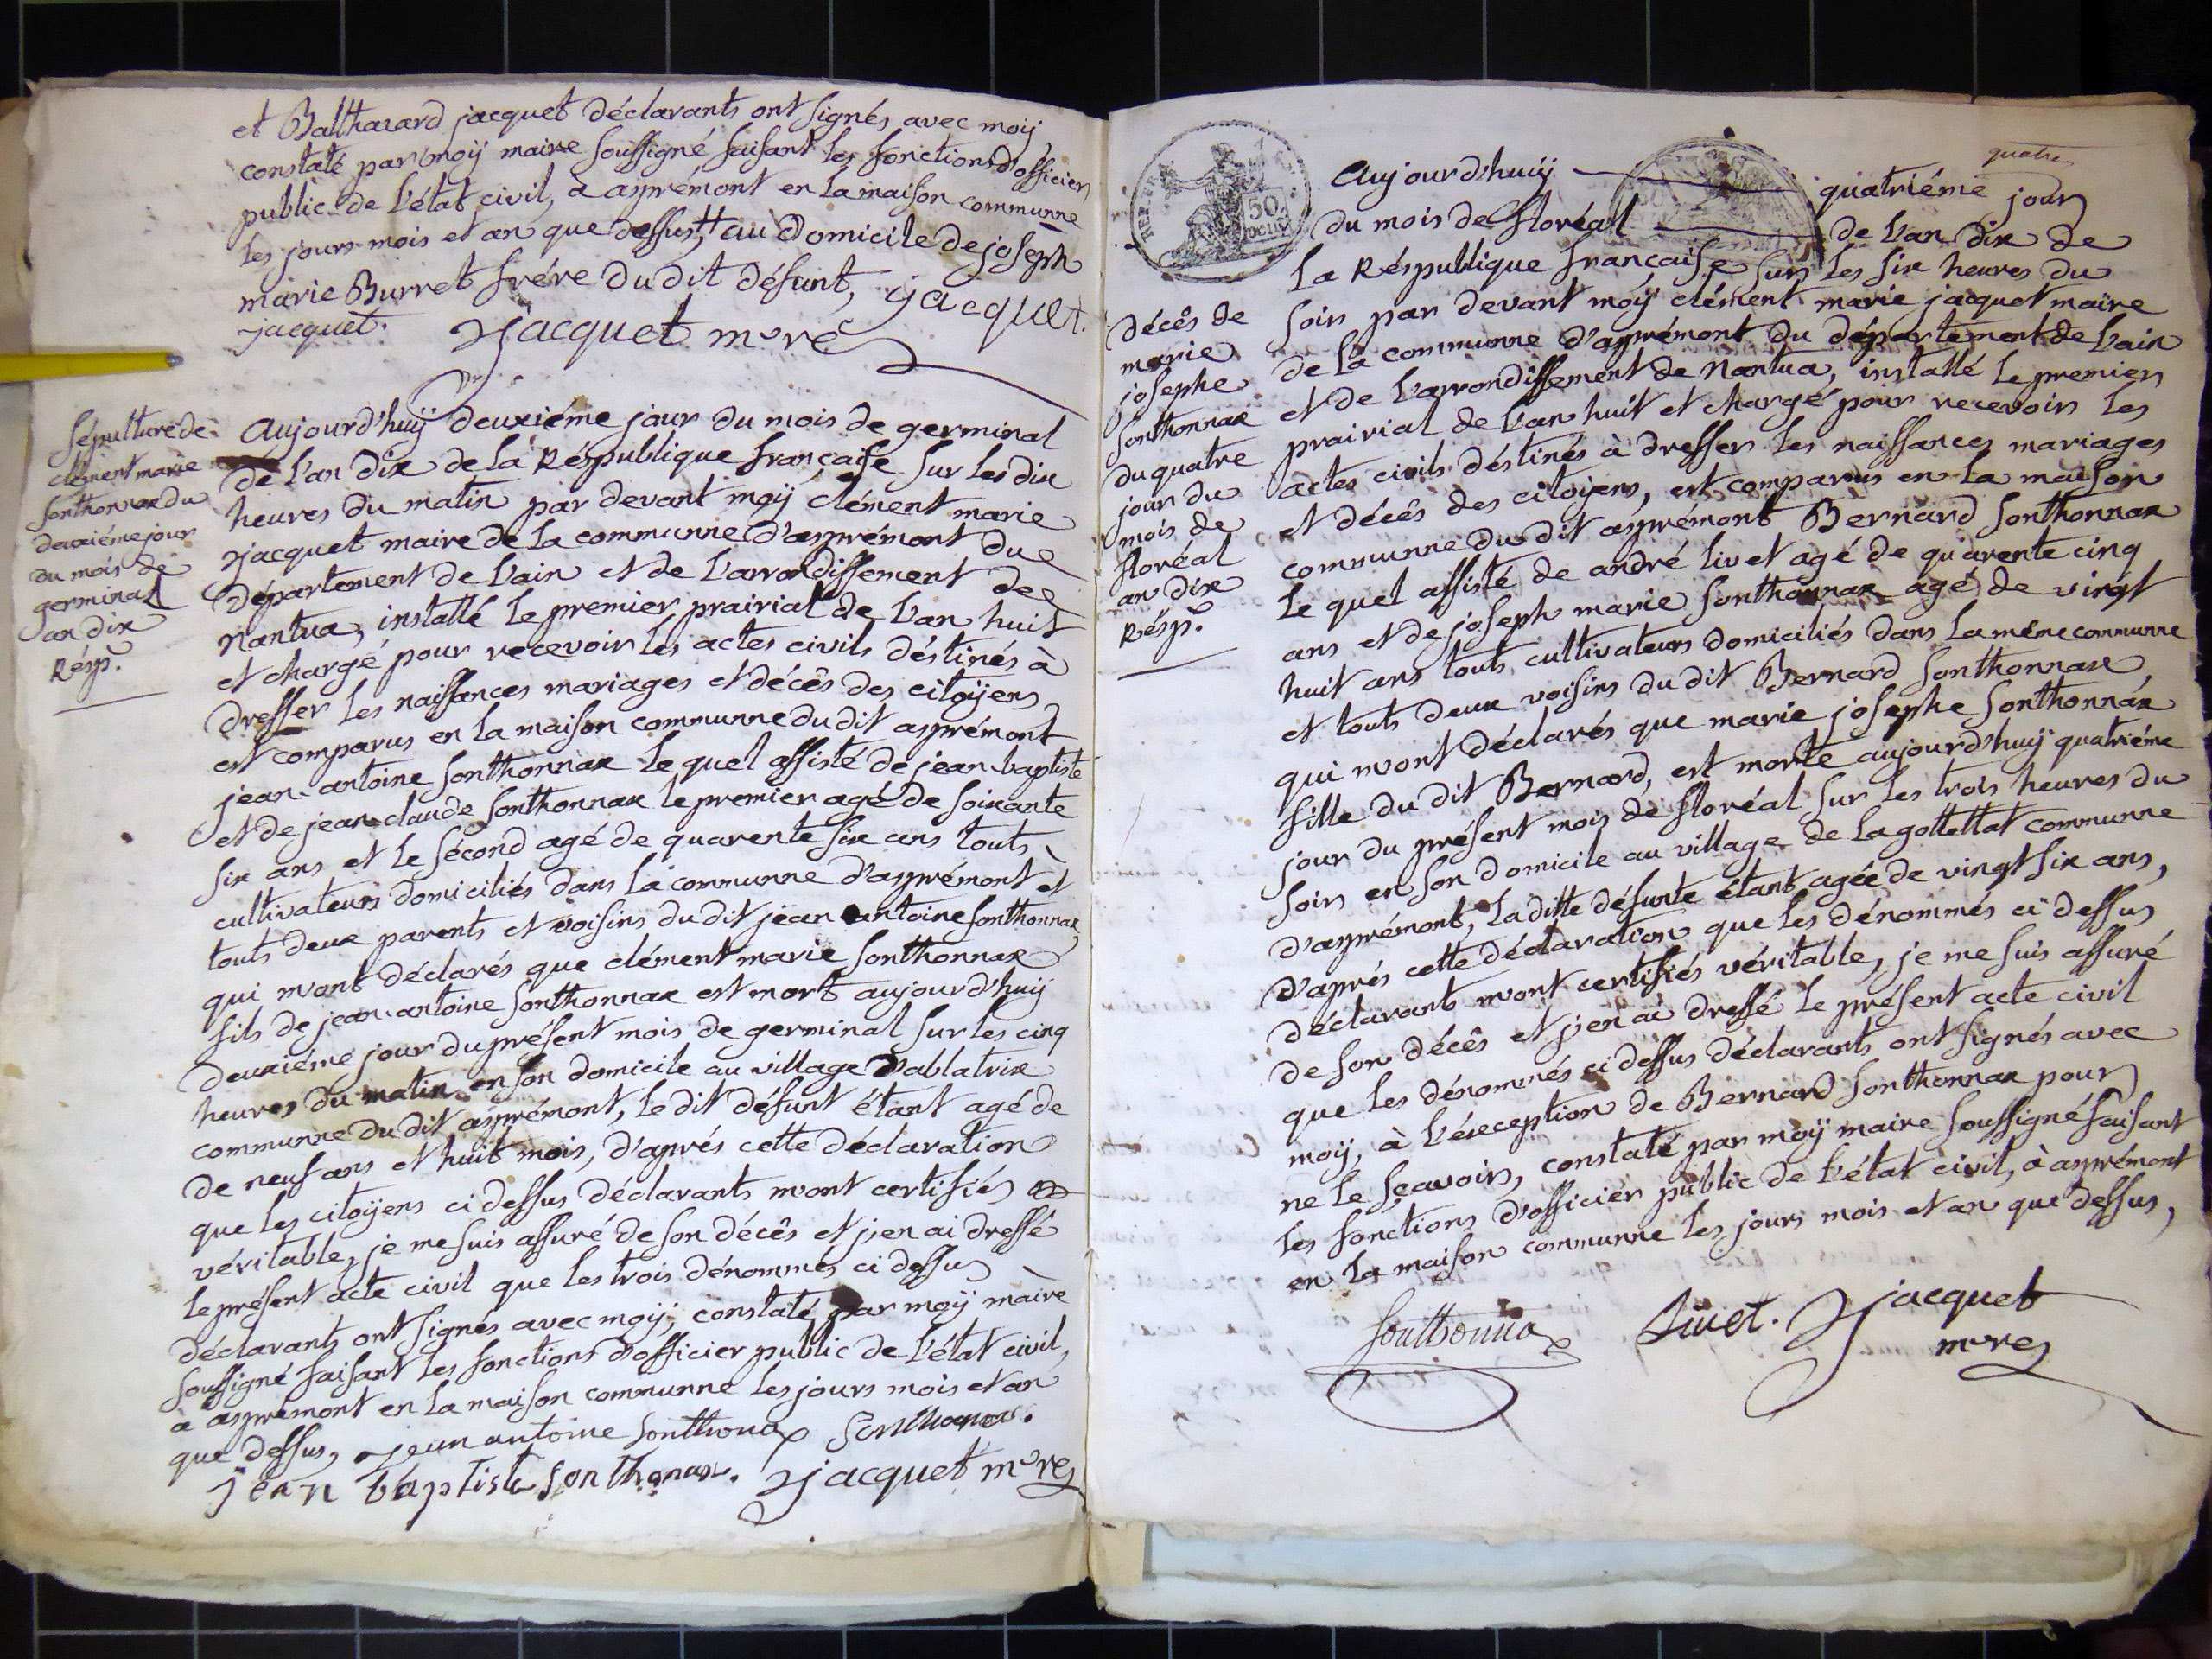 et Balthazard jacquet déclarants ont signés avec moÿ
constaté par moÿ maire soussigné faisant les fonctions d'officier
public de l'état civil, a asprémont en la maison communne
les jours mois et an que dessus, au domicile de joseph
marie Burret frére du dit défunt, jacquet.
jacquet. jacquet mre
Sépulture de
clément marie
Sonthonnax du
deuxiéme jour
du mois de
germinal
an dix
Résp.
aujourd'huÿ deuxiéme jour du mois de germinal
de l'an dix de la Réspublique française sur les dix
heures du matin par devant moÿ clément marie
jacquet maire de la communne d'asprémont du
département de l'ain et de l'arrondissement de
nantua, installé le premier prairial de l'an huit
et chargé pour recevoir les actes civils déstinés à
dresser les naissances mariages et décês des citoÿens,
est comparus en la maison communne du dit asprémont
jean-antoine Sonthonnax le quel assisté de jean-baptiste
et de jean-claude Sonthonnax le premier agé de soixante
six ans et le sécond agé de quarente six ans touts
cultivateurs domiciliés dans la communne d'asprémont et
touts deux parents et voisins du dit jean antoine Sonthonnax,
qui m'ont déclarés que clément marie Sonthonnax
fils de jean-antoine Sonthonnax est mort aujourd'huÿ
deuxiéme jour du présent mois de germinal sur les cinq
heures du matin en son domicile au village d'ablatrix
communne du dit asprémont, le dit défunt étant agé de
de neuf ans et huit mois, d'aprés cette déclaration
que les citoÿens ci dessus déclarants m'ont certifiés
véritable, je me suis assuré de son décês et j'en ai dressé
le présent acte civil que les trois dénommés ci dessus
déclarants ont signés avec moÿ, constaté par moÿ maire
soussigné faisant les fonctions d'officier public de l'état civil,
a asprémont en la maison communne les jours mois et an
que dessus, jean antoine Sonthonax Sonthonax.
jean baptiste sonthonax. jacquet mre
50
quatre
aujourd'huÿ quatriéme jour
du mois de floréal de l'an dix de
la Réspublique francaise sur les six heures du
soir par devant moÿ clément marie jacquet maire
de la communne d'asprémont du département de l'ain
et de l'arrondissement de Nantua, installé le premier
prairial de l'an huit et chargé pour recevoir les
actes civils déstinés à dresser les naissances mariages
et décês des citoÿens, est comparus en la maison
communne du dit asprémont Bernard Sonthonnax
le quel assisté de andré livet agé de quarente cinq
ans et de joseph marie Sonthonnax agé de vingt
huit ans touts cultivateurs domiciliés dans la même communne
et touts deux voisins du dit Bernard Sonthonnax,
qui m'ont déclarés que marie josephe Sonthonnax
fille du dit Bernard, est morte aujourd'huÿ quatriéme
jour du présent mois de floréal sur les trois heures du
soir en son domicile au village de la gottettat communne
d'asprémont, la ditte défunte étant agée de vingt six ans,
d'aprés cette déclaration que les dénommés ci dessus
déclarants m'ont certifiés véritable, je me suis assuré
de son décês et j'en ai dressé le présent acte civil
que les dénommés ci dessus déclarants ont signés avec
moÿ, à l'éxception de Bernard Sonthonnax pour
ne le sçavoir, constaté par moÿ maire soussigné faisant
les fonctions d'officier public de l'état civil, à asprémont
en la maison communne les jours mois et an que dessus,
Sonthonnax Livet. jacquet
mre
décês de
marie
josephe
Sonthonnax
du quatre
jour du
mois de
floréal
an dix
Résp.